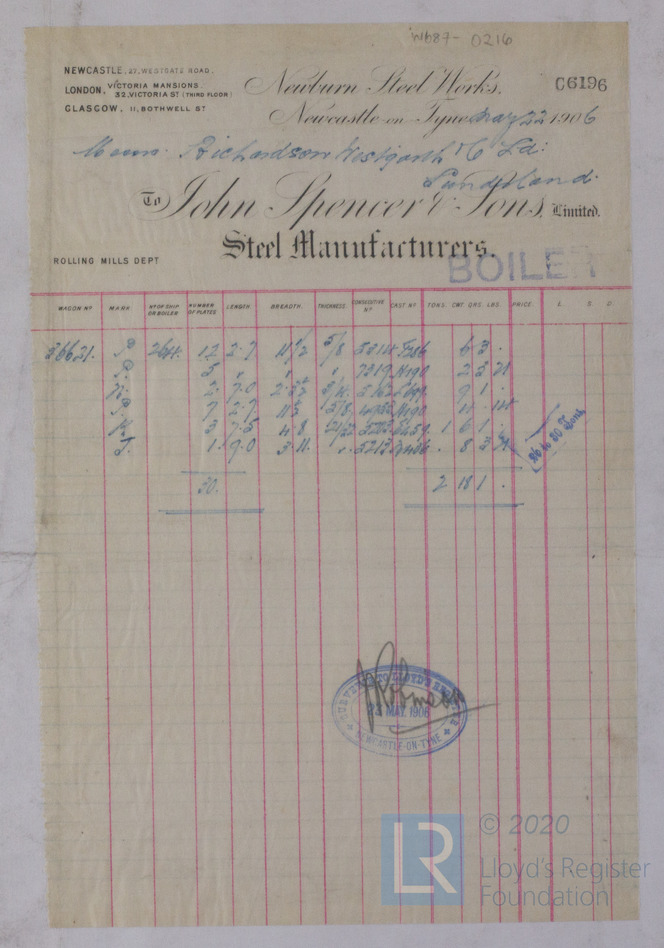 W687- 0216
NEWCASTLE, 27, WESTGATE ROAD.
LONDON, VICTORIA MANSIONS. 32, VICTORIA ST (THIRD FLOOR)
GLASGOW, 11, BOTHWELL ST
Newburn Steel Works.
C6196
Newcastle-on-Tyne May 22 1906
Messrs. Richardson Westgarth & Co Ld:
Sunderland.
To John Spencer & Sons, Limited.
Steel Manufacturers.
ROLLING MILLS DEPT
BOILER
WAGON No MARK No OF SHIP OR BOILER NUMBER OF PLATES LENGTH. BREADTH. THICKNESS. CONSECUTIVE No CAST No TONS. CWT QRS. LBS. PRICE. £. S. D.
36621. 264. 12 2.7 11½ 5/8 6 3.
5 " " 7219 2 3 21
2. 7.0 9 1.
7 2.7 5/8 11
3 7.5 4.8 21/32 1 6 1
J. 1. 9.0 3.11. " 5213 8 3
26 to 30 Tons
30. 2 18 1 .
SURVEYOR TO LLOYD'S REGISTER
23 MAY. 1906
NEWCASTLE-ON-TYNE
LR
© 2020
Lloyd's Register
Foundation